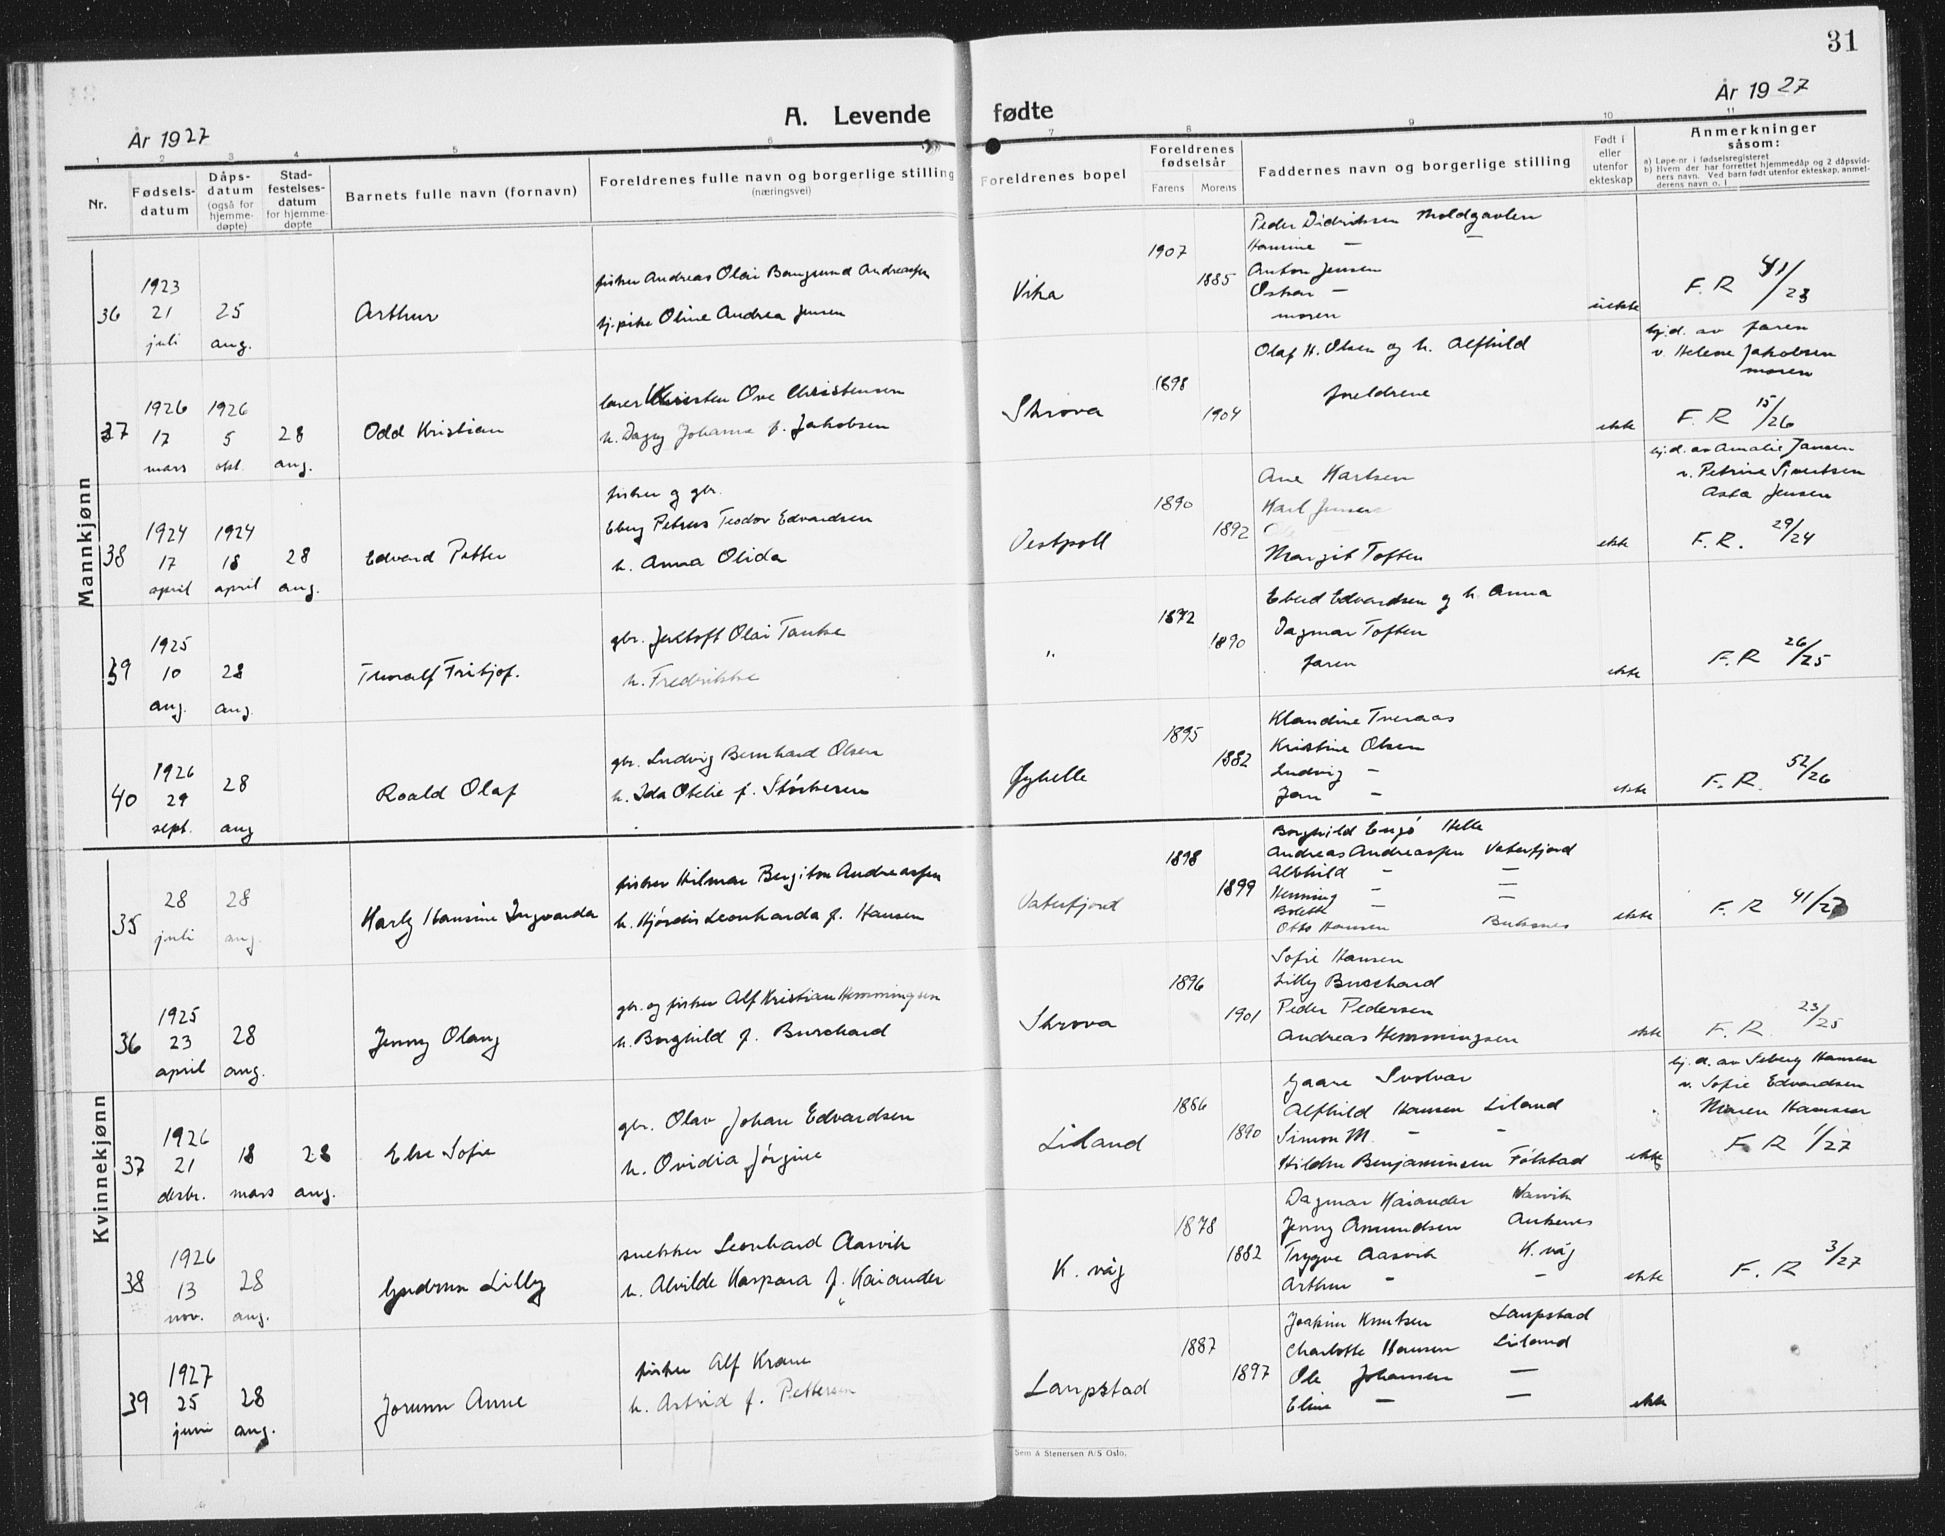 31
År 1927
A. Levende fødte
År 1927
1 2 3 4 5 6 7 8 9 10 11
Nr.
Fødsels-
datum
Dåps-
datum
(også for
hjemme-
døpte)
Stad-
festelses-
datum
for hjemme-
døpte
Barnets fulle navn (fornavn)
Foreldrenes fulle navn og borgerlige stilling
(næringsvei)
Foreldrenes bopel
Foreldrenes
fødselsår
Farens Morens
Faddernes navn og borgerlige stilling
Født i
eller
utenfor
ekteskap
Anmerkninger
såsom:
a) Løpe-nr. i fødselsregisteret
b) Hvem der har forrettet hjemmedåp og 2 dåpsvid-
ners navn. Ved barn født utenfor ekteskap, anmel-
derens navn o. l
Mannkjønn
36
1923
21
juli
25
aug.
Arthur
fisker Andreas Olai Bangsund Andreassen
tj. pike Oline Andrea Jensen
Vika
1907
1885
Peder Didriksen Moldgavlen
Hansine — —
Anton Jensen
Oskar —
moren
uekte
F. R 41/23
37
1926
17
mars
1926
5
okt.
28
aug.
Odd Kristian
lærer Christen Ove Christensen
h. Dagny Johanne f. Jakobsen
Skrova
1898
1904
Olaf H. Olsen og h. Alfhild
foreldrene
ekte
hj.d. av faren
v. Helene Jakobsen
moren
F. R 15/26
38
1924
17
april
1924
18
april
28
aug.
Edvard Petter
fisker og gbr.
Eberg Petrus Teodor Edvardsen
h. Anna Olida
Vestpoll
1890
1892
Ane Karlsen
Karl Jensen
Margit Toften
ekte
hj.d. av Amalie Jansen
v. Petrine Sivertsen
Asta Jensen
F. R. 29/24
39
1925
10
aug.
28
aug.
Thoralf Fritjof.
gbr. Jentoft Olai Tanke
h. Fredrikke
"
1872
1890
Eberd Edvardsen og h. Anna
Dagmar Toften
faren
ekte
F. R 26/25
40
1926
29
sept.
28
aug
Roald Olaf
gbr. Ludvig Bernhard Olsen
h. Ida Otelie f. Størkesen
Øyhelle
1895
1882
Klaudine Tveraas
Kristine Olsen
Ludvig —
Jan —
ekte
F. R. 52/26
Kvinnekjønn
35
28
juli
28
aug.
Harly Hansine Ingvarda
fisker Hilmar Bergiton Andreassen
h. Hjørdis Leonharda f. Hansen
Vaterfjord
1898
1899
Borghild Engø Helle
Andreas Andreassen Vaterfjord
Alvhild — —
Henning — —
Bolette
Otto Hansen Buksnes
ekte
F. R 41/27
36
1925
23
april
28
aug.
Jenny Olaug
gbr. og fisker Alf Kristian Hemmingsen
h. Borghild f. Burchard
Skrova
1896
1901
Sofie Hansen
Lilly Burchard
Peder Pedersen
Andreas Hemmingsen
ekte
F. R. 23/25
37
1926
21
desbr.
18
mars
28
aug.
Else Sofie
gbr. Olav Johan Edvardsen
h. Ovidia Jørgine
Liland
1886
1890
Gaare Svolvær
Alfhild Hansen Liland
Simon M. — —
Hildur Benjaminsen Følstad
ekte
hj. d. av Seberg Hansen
v. Sofie Edvardsen
Maren Hansen
F R 1/27
38
1926
13
nov.
28
aug.
Gudrun Lilly
snekker Leonhard Aasvik
h. Alvilde Kaspara f. Kaiander
K. våg
1878
1882
Dagmar Kaiander Narvik
Jenny Amundsen Ankenes
Trygve Aasvik K. våg
Arthur — —
ekte
F. R 3/27
39
1927
25
juni
28
aug.
Jorunn Anne
fisker Alf Krane
h. Astrid f. Pettersen
Laupstad
1887
1897
Joakim Knutsen Laupstad
Charlotte Hansen Liland
Ole Johansen —
Eline — —
ekte
Sem & Stenersen A/S Oslo.